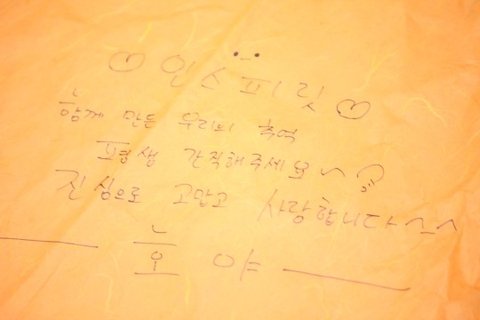 ♡인스피릿♡
함께 만든 우리의 추억
평생 간직해주세요~
진심으로 고맙고 사랑합니다^-^
호야